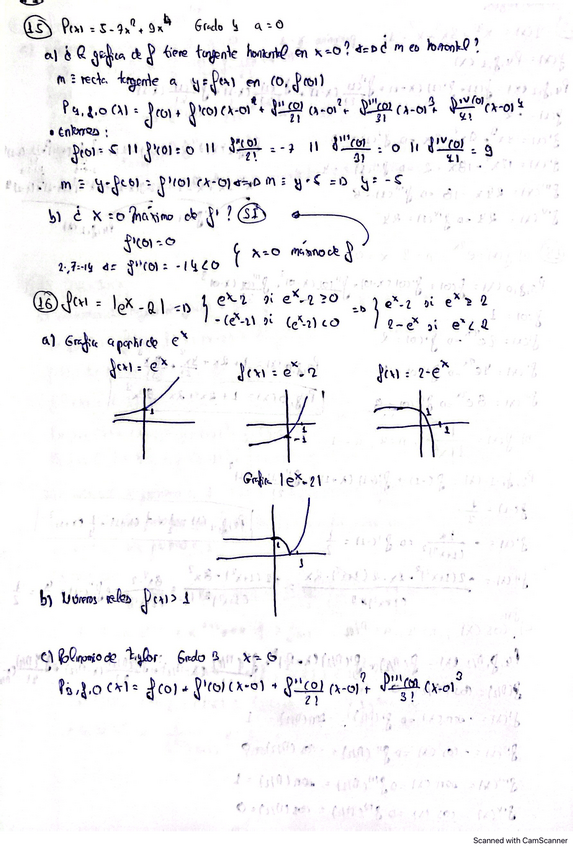 15 P(x) = 5 - 7x² + 9x⁴ Grado 4 a = 0
a) ¿ la gráfica de f tiene tangente horizontal en x=0? ⇐⇒ ¿ m es horizontal?
m ≡ recta tangente a y = f(x) en (0, f(0))
P4,f,0(x) = f(0) + f'(0)(x-0) + f''(0)/2! (x-0)² + f'''(0)/3! (x-0)³ + f^IV(0)/4! (x-0)⁴
• entonces:
f(0) = 5 || f'(0) = 0 || f''(0)/2! = -7 || f'''(0)/3! = 0 || f^IV(0)/4! = 9
m ≡ y - f(0) = f'(0)(x-0) ⇐⇒ m ≡ y - 5 ⇒ y = -5
b) ¿ x=0 máximo de f? SI
f'(0) = 0
2·,7=-14 ⇐ f''(0) = -14 < 0 } x=0 máximo de f
16 f(x) = |eˣ - 2| ⇒ { eˣ-2 si eˣ-2 ≥ 0 ⇒ { eˣ-2 si eˣ ≥ 2
-(eˣ-2) si (eˣ-2) < 0 2-eˣ si eˣ < 2
a) Grafica a partir de eˣ
f(x) = eˣ f(x) = eˣ - 2 f(x) = 2 - eˣ
1 1 -1 1 1
Grafica |eˣ - 2|
1 1
b) Números reales f(x) > 1
c) Polinomio de Taylor Grado 3 x = 0
P3,f,0(x) = f(0) + f'(0)(x-0) + f''(0)/2! (x-0)² + f'''(0)/3! (x-0)³
Scanned with CamScanner